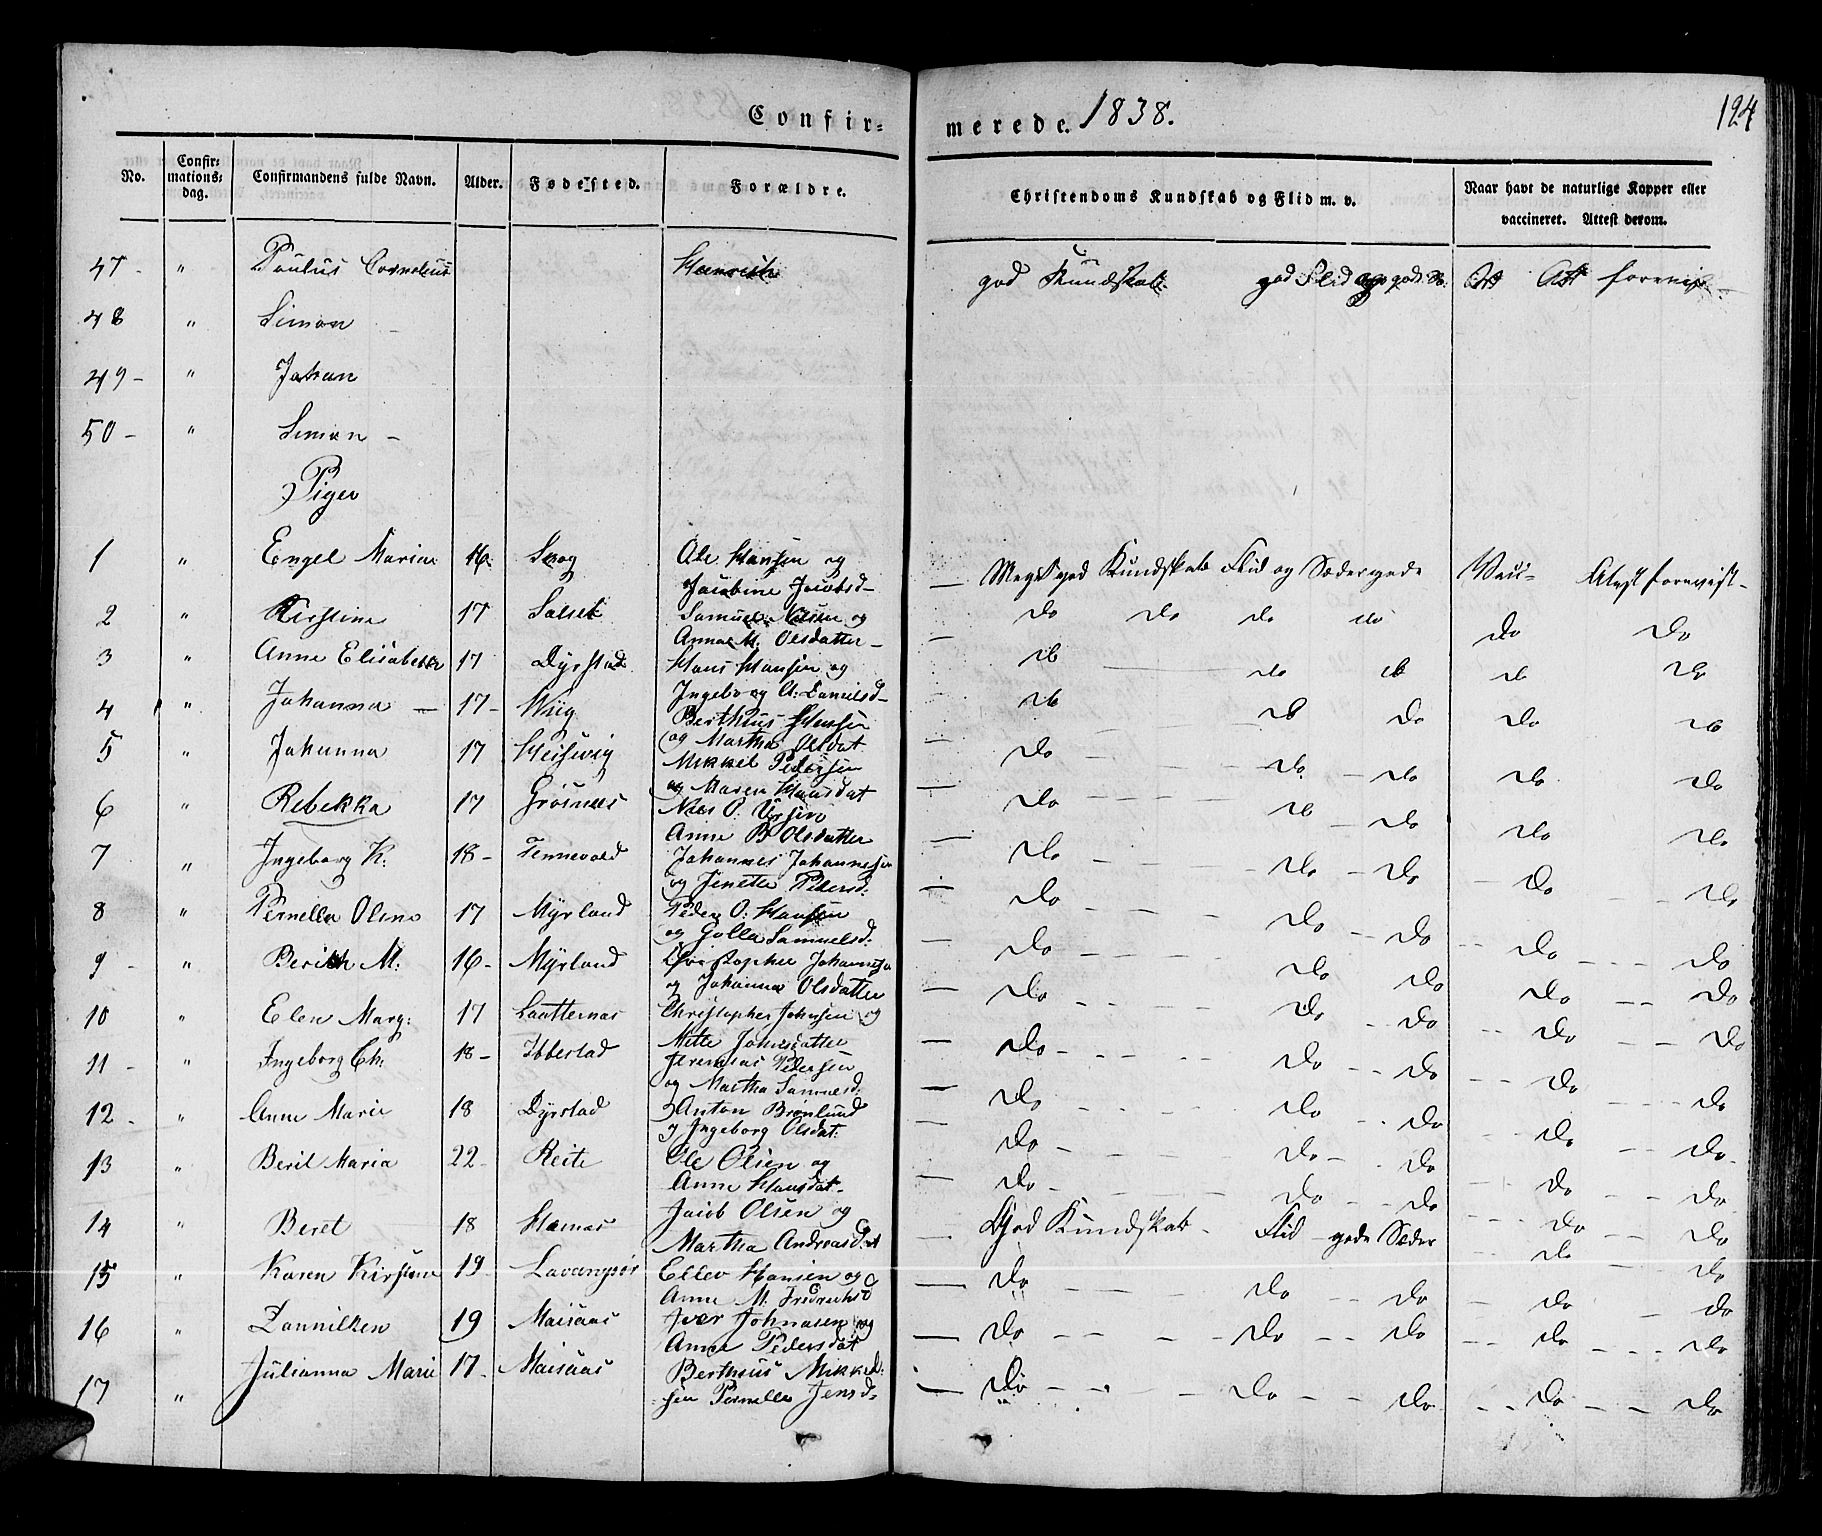 Confir= merede. 1838. 124
No. Confir=mations=dag. Confirmandens fulde Navn. Alder. Fødested. Forældre. Christendoms Kundskab og Flid m. v. Naar havt de naturlige Kopper eller vaccineret. Attest derom.
47 - " Paulus Cornelius god Kundskab god Flid og gode
48 " Simon -
49 - " Johan
50 - " Simon -
Piger
1 " Engel Maria 16 Skog Ole Hansen og Jacobine Jacobsd - Meget god Kundskab Flid og Sæder gode Vac - Attest forevist -
2 " Kirstine 17 Salset Samuel Nilsen og Anna M: Olsdatter - Do Do Do Do Do Do
3 " Anne Elisabeth 17 Dyrstad Hans Hansen og Ingeborg A: Danielsd - Do Do Do Do Do
4 " Johanna - 17 - Wiig Berthius Hansen og Martha Olsdat Do Do Do Do Do
5 " Johanna 17 Mikkel Pedersen og Maren Hansdat Do Do Do Do Do
6 " Rebekka 17 Grøsnees Nils P: Anne B Olsdatter Do Do Do Do Do
7 " Ingeborg K: 18 - Tennevold Johannes Johannesen og Jenetta Pedersd: Do Do Do Do Do
8 " Pernella Oline 17 Myrland Peder O: Hansen og Golla Samuelsd: Do Do Do Do Do
9 - " Berith M: 16 - Myrland Christopher Johannesen og Johanna Olsdatter Do Do Do Do Do
10 " Elen Marg: 17 Laatternas Christopher Johnsen og Mette Jonesdatter Do Do Do Do Do
11 - " Ingeborg Ch: 18 - Ibbestad Jeremias Pedersen og Martha Samuelsd: Do Do Do Do Do
12 - " Anne Marie 18 Dyrstad Anton Brønlund og Ingeborg Olsdat: Do Do Do Do Do
13 " Beril Maria 22 - Reite Ole Olsen og Anne Hansdat - Do Do Do Do Do
14 " Beret 18 Hamas Jacob Olsen og Martha Andreasdat God Kundskab - Flid - gode Sæder Do Do
15 " Karen Kirstine 19 Ellev Hansen og Anne M. Fridrichsd Do Do Do Do Do
16 " Zannikken 19 Maisaas Iver Johnasen og Anne Pedersdat Do Do Do Do Do
17 " Julianna Marie 17 - Maisaas Berthius Mikkel: sen Pernella Jensd - Do Do Do Do Do